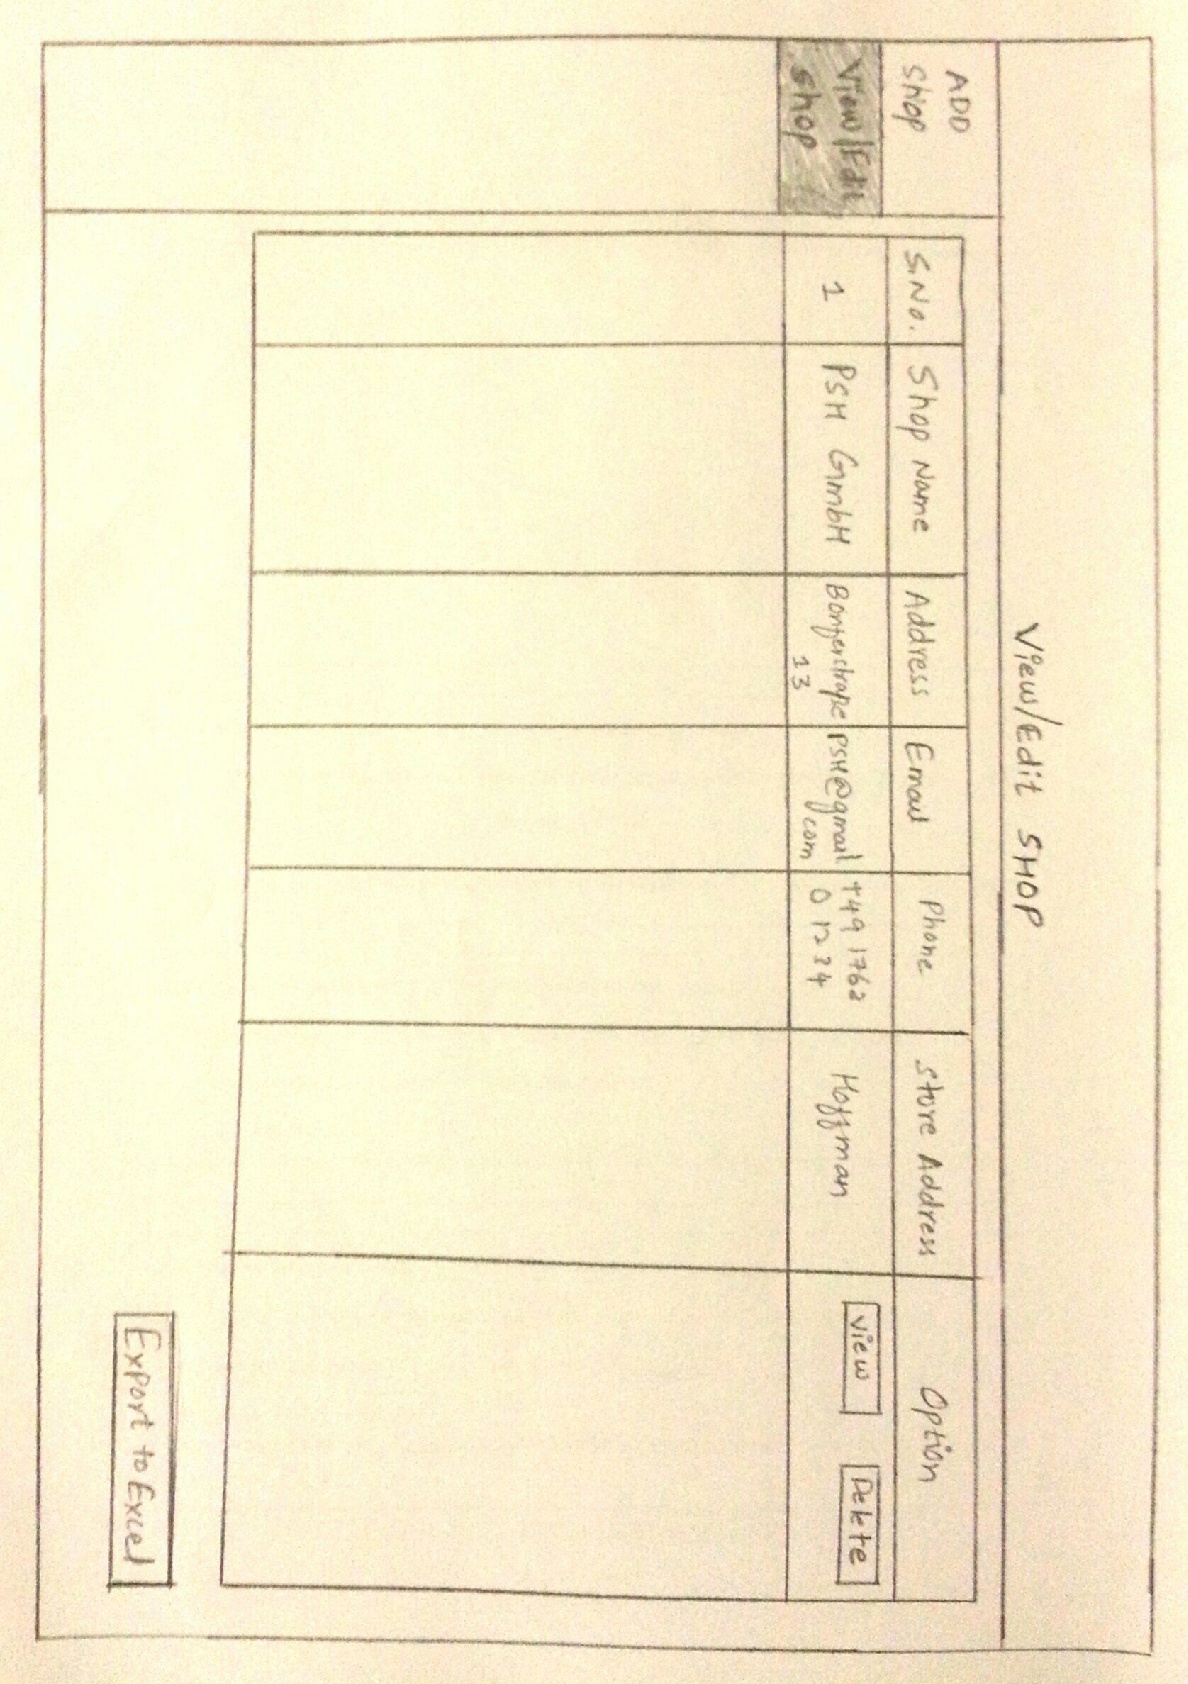 View/Edit SHOP
ADD
Shop
View/Edit
Shop
S.No.
Shop Name
Address
Email
Phone
Store Address
Option
1
PSH GmbH
13
PSH@gmail
com
+49 1762
0 1234
Hoffman
View
Delete
Export to Excel